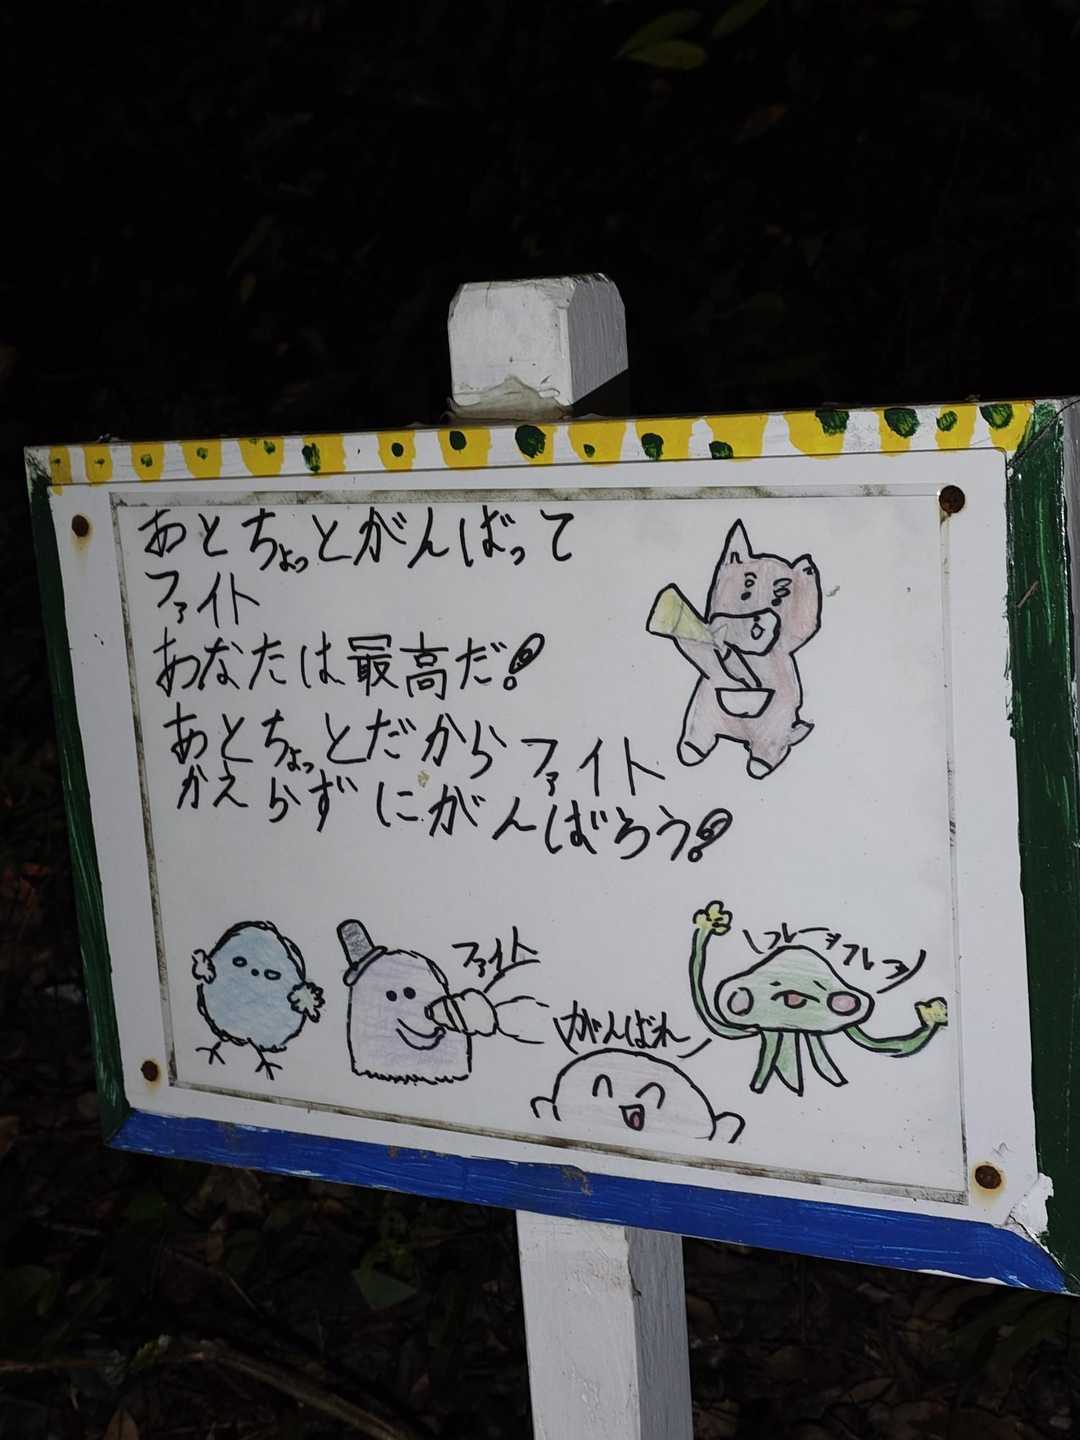 あとちょっとがんばって
ファイト
あなたは最高だ!
あとちょっとだからファイト
かえらずにがんばろう!
ファイト
がんばれ
フレーフレー